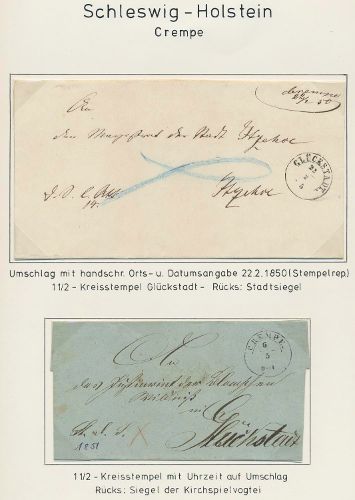 Schleswig-Holstein
Crempe
Crempe
22/2 50
An
den Magistrat der Stadt Itzehoe
Itzehoe
GLÜCKSTADT
22
2
Umschlag mit handschr. Orts- u. Datumsangabe 22.2.1850 (Stempelrep.)
11/2 - Kreisstempel Glückstadt - Rücks: Stadtsiegel
CREMPE
6
5
An
in
Glückstadt
1851
11/2 - Kreisstempel mit Uhrzeit auf Umschlag
Rücks: Siegel der Kirchspielvogtei